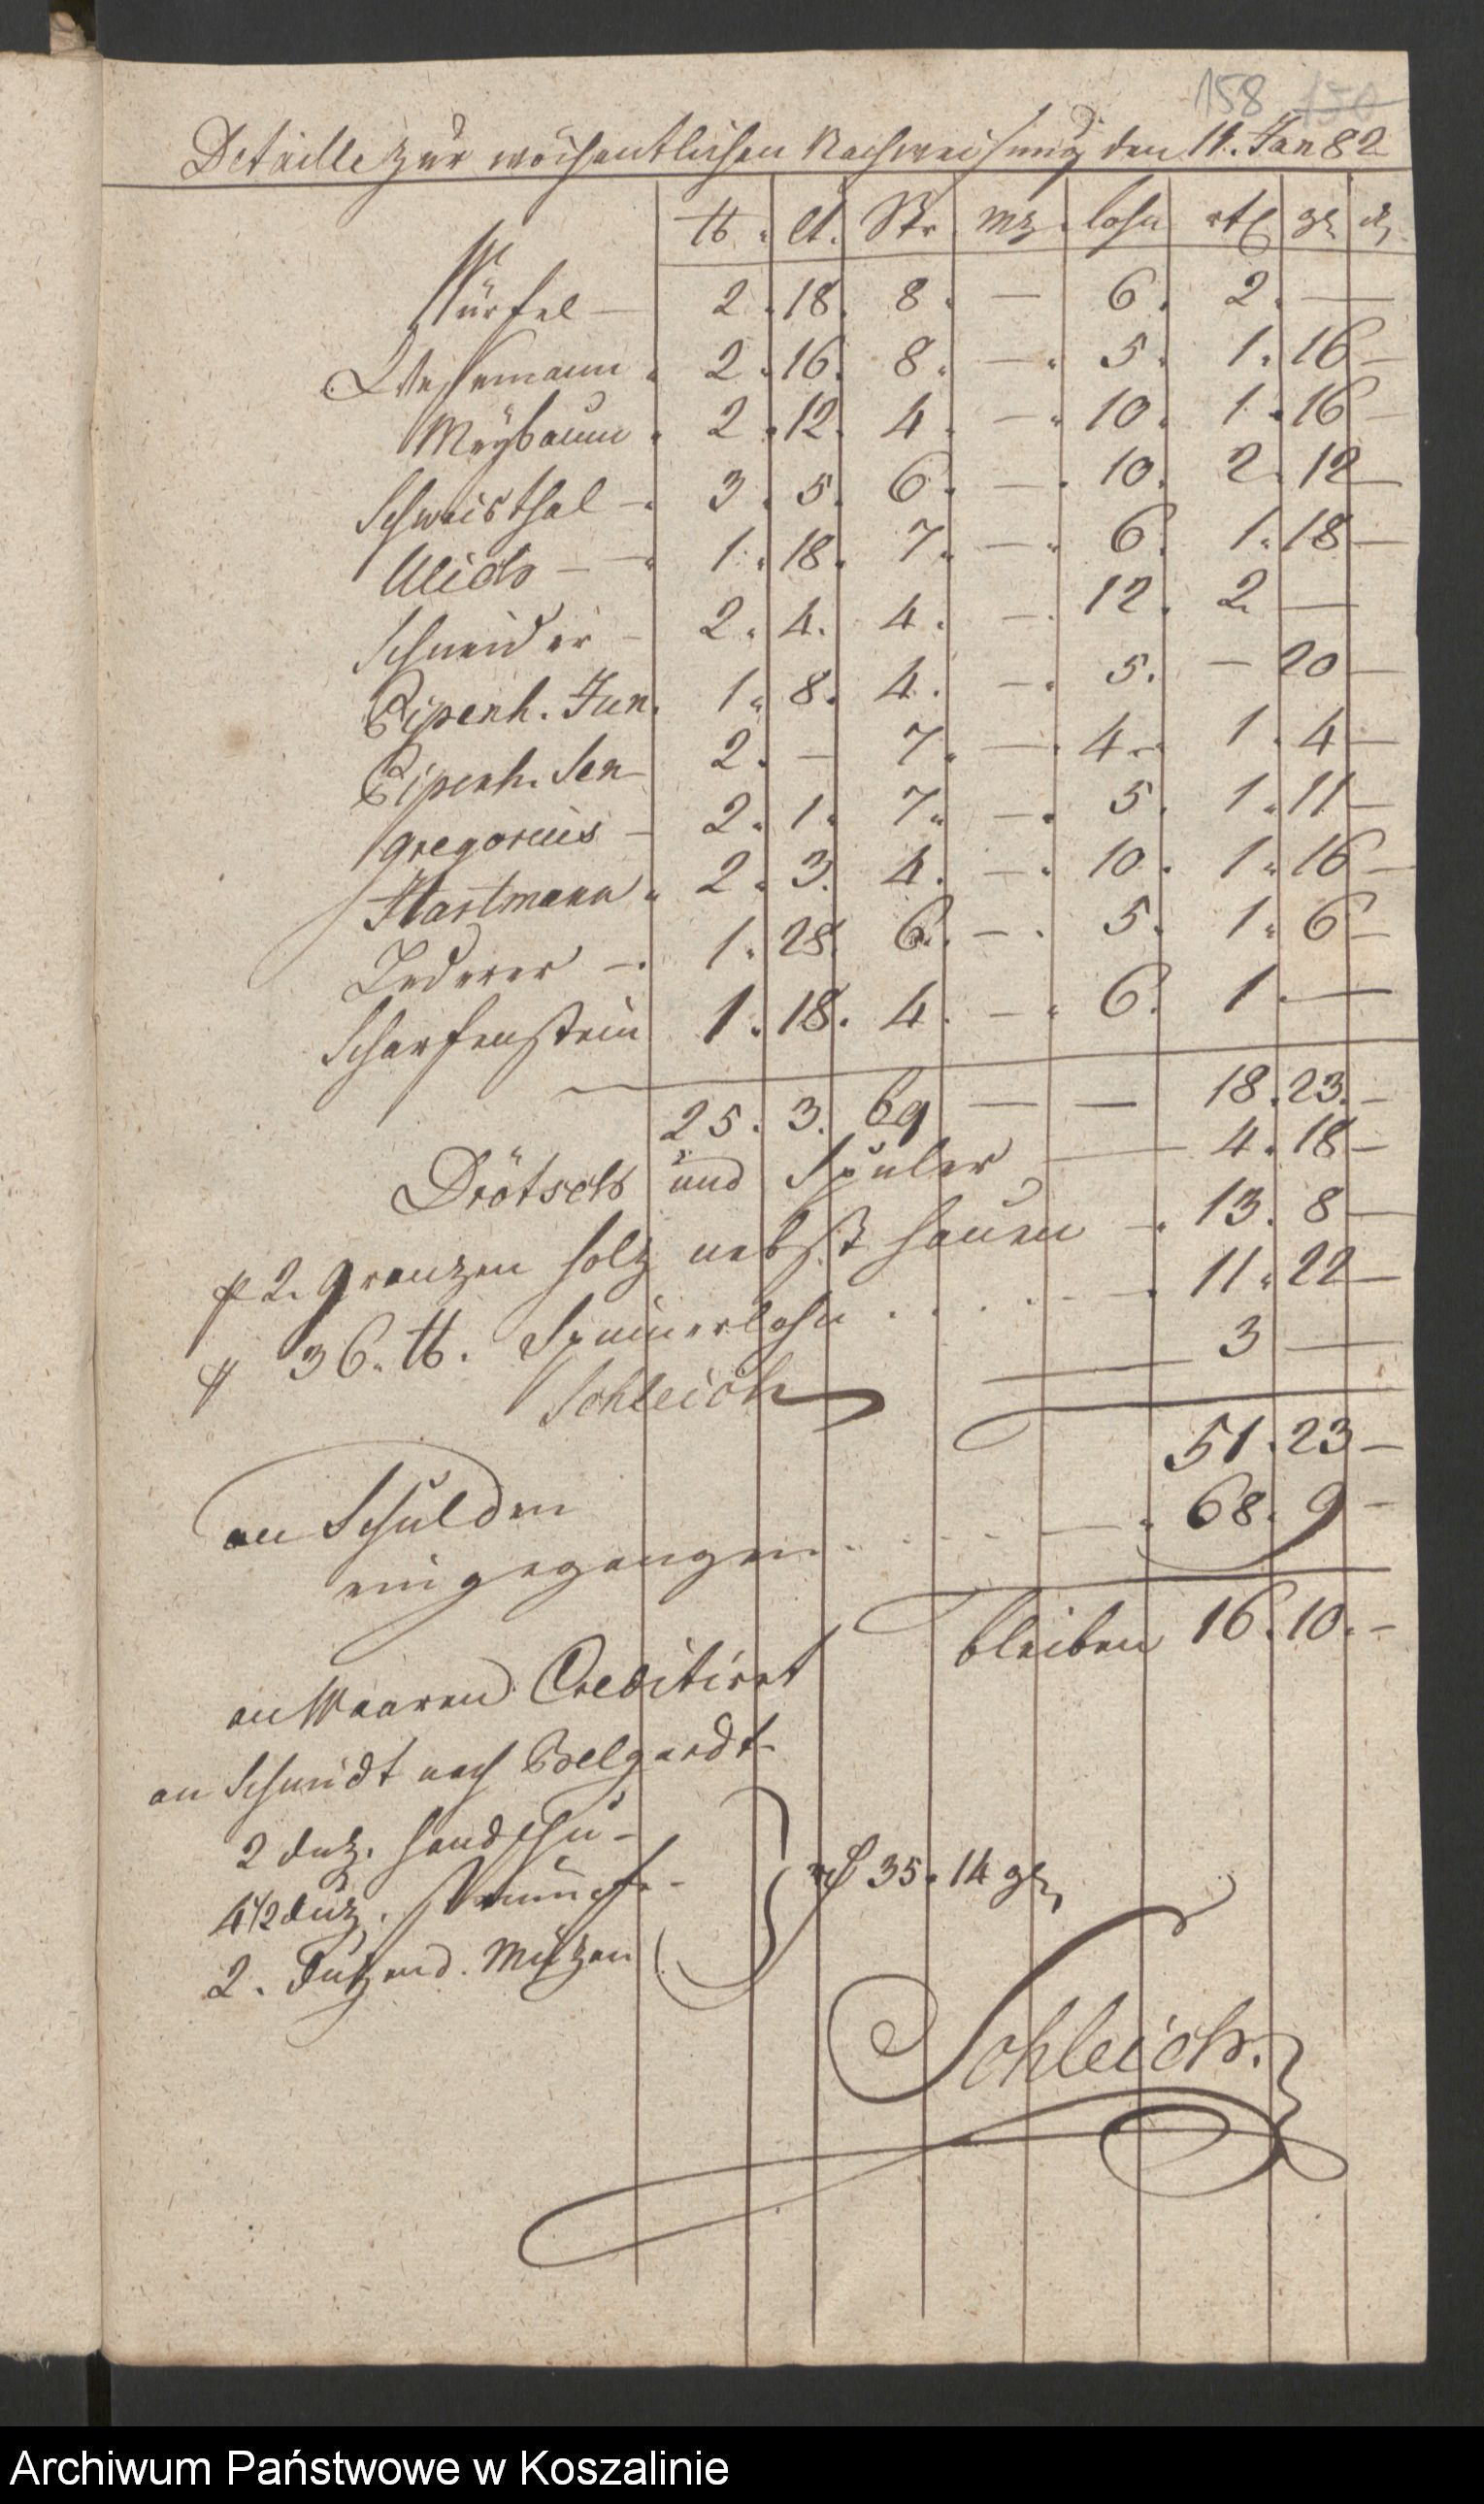 158 150
Detaille zur wöchentlichen Nachweisung den 11. Jan 82
℔. Lt. Str. Mz. lohn rtl gr ₰
Würfel — 2. 18. 8. — 6. 2. —
2. 16. 8. — 5. 1. 16 —
Meybaum. 2. 12. 4. — 10. 1. 16 —
Schweisthal — 3. 5. 6. — 10. 2. 12 —
— 1. 18. 7. — 6. 1. 18 —
Schneider — 2. 4. 4. — 12. 2. —
Pipenh. Jun. 1. 8. 4. — 5. — 20 —
Pipenh. Sen — 2. — 7. — 4. 1. 4 —
gregorius — 2. 1. 7. — 5. 1. 11 —
Hartmann. 2. 3. 4. — 10. 1. 16 —
Lederer — 1. 28. 6. — 5. 1. 6 —
Scharfenstein 1. 18. 4. — 6. 1. —
25. 3. 69 — — 18. 23. —
Drötsch und Spuler — 4. 18 —
p 2. holz nebst hauen — 13. 8 —
p 36. ℔. Spinnerlohn — 11. 22 —
Schleich — 3 —
51. 23 —
an Schulden
eingegangen — 68. 9 —
bleiben 16. 10. —
an Waaren Creditirt
an Schmidt nach Belgardt —
2 dutz. handschu —
4 1/2 dutz. Strümpfe —
rtl 35. 14 gr
2. Dutzend. Mützen
Schleich.
Archiwum Państwowe w Koszalinie